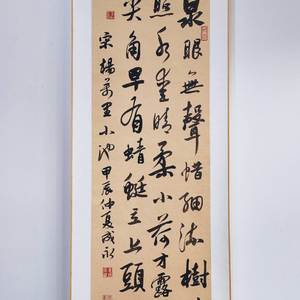 泉眼無聲惜細流樹
照水愛晴柔小荷才露
尖角早有蜻蜓立上頭
宋楊萬里小池甲辰仲夏成永